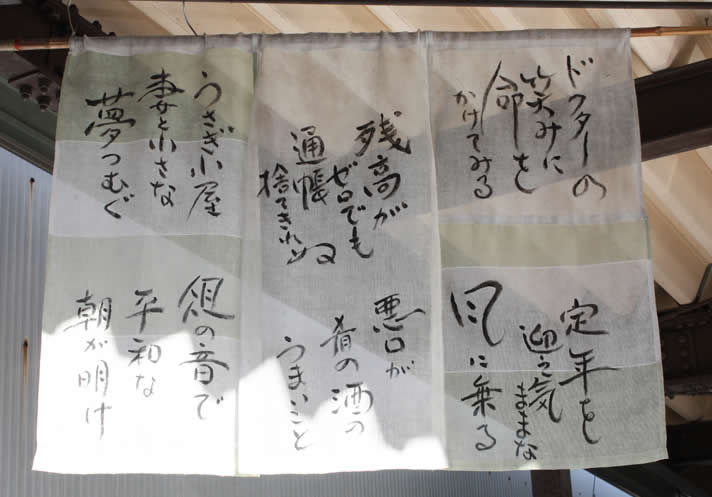 ドクターの
笑みに
命を
かけてみる
定年を
迎え気
ままな
風に乗る
残高が
ゼロでも
通帳
捨てきれぬ
悪口が
肴の酒の
うまいこと
うさぎ小屋
妻と小さな
夢つむぐ
俎の音で
平和な
朝が明け